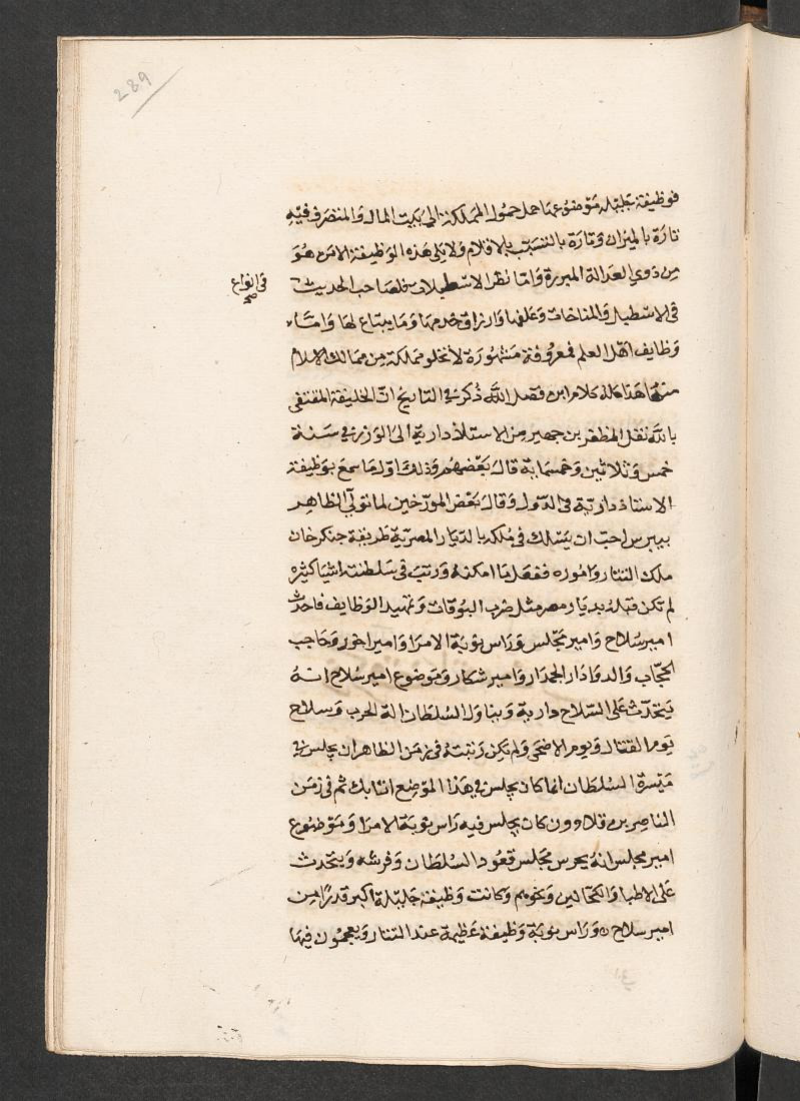 289
فوظيفة جليلة موضوعها حمل حمول المملكة الى بيت المال والمتصرف فيه
تارة بالميزان وتارة بالتسبب بالاقلام ولا يلى هذه الوظيفة الا من هو
من ذوي العدالة المبررة واما نظر الاسطبلات فلصاحب الحديث
في انواع
صح
في الاسطبل والمناخات وعلفها وارزاق خدمها وما يبتاع لها واما
وظايف اهل العلم فمعروفة مشهورة لا تخلو مملكة من ممالك الاسلام
منها هذا كله كلام ابن فضل الله ذكر في التاريخ ان الخليفة المقتفى
بالله نقل المظفر بن جهير من الاستادارية الى الوزر في سنة
خمس وثلاثين وخمسماية قال بعضهم وذلك اول ما سمع بوظيفة
الاستادارية في الدول وقال بعض المورخين لما تولى الظاهر
بيبرس احب ان يسلك في ملكه بالديار المصرية طريقة جنكز خان
ملك التتار واموره ففعل ما امكنه ورتب في سلطنته اشيا كثيره
لم تكن قبله بديار مصر مثل ضرب البوقات وتجديد الوظايف فاحدث
امير سلاح وامير مجلس وراس نوبة الامرا وامير اخور وحاجب
الحجاب والدوادار الجمدار وامير شكار وموضوع امير سلاح انه
يتحدث على السلاح دارية ويناول السلطان الة الحرب وسلاح
يوم القتال ويوم الاضحى ولم تكن رتبته في زمن الظاهر ان يجلس في
ميسرة السلطان انما كان يجلس في هذا الموضع اتابك ثم في زمن
الناصر بن قلاوون كان يجلس فيه راس نوبة الامرا وموضوع
امير مجلس انه يحرس مجلس قعود السلطان وفرشه ويتحدث
على الاطبا والكحالين ونحوهم وكانت وظيفة جليلة اكبر قدرا من
امير سلاح وراس نوبة وظيفة عظيمة عند التتار ويفخمون فيها